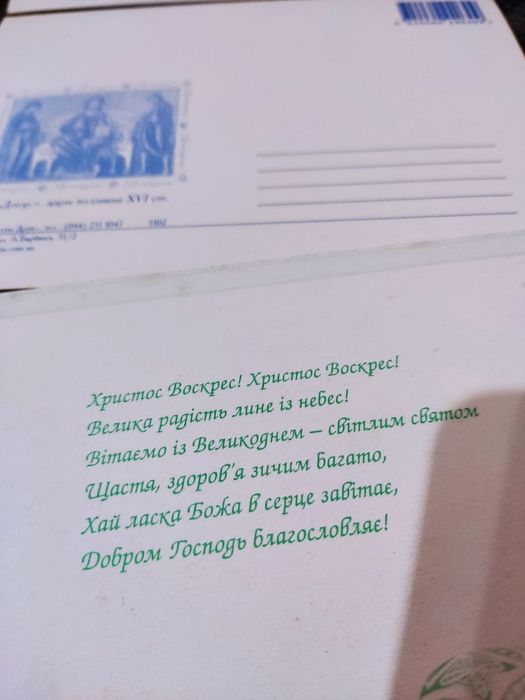 «Деісус», друга половина XVI ст.
(044) 231 1047 5102
Христос Воскрес! Христос Воскрес!
Велика радість лине із небес!
Вітаємо із Великоднем – світлим святом
Щастя, здоров'я зичим багато,
Хай ласка Божа в серце завітає,
Добром Господь благословляє!